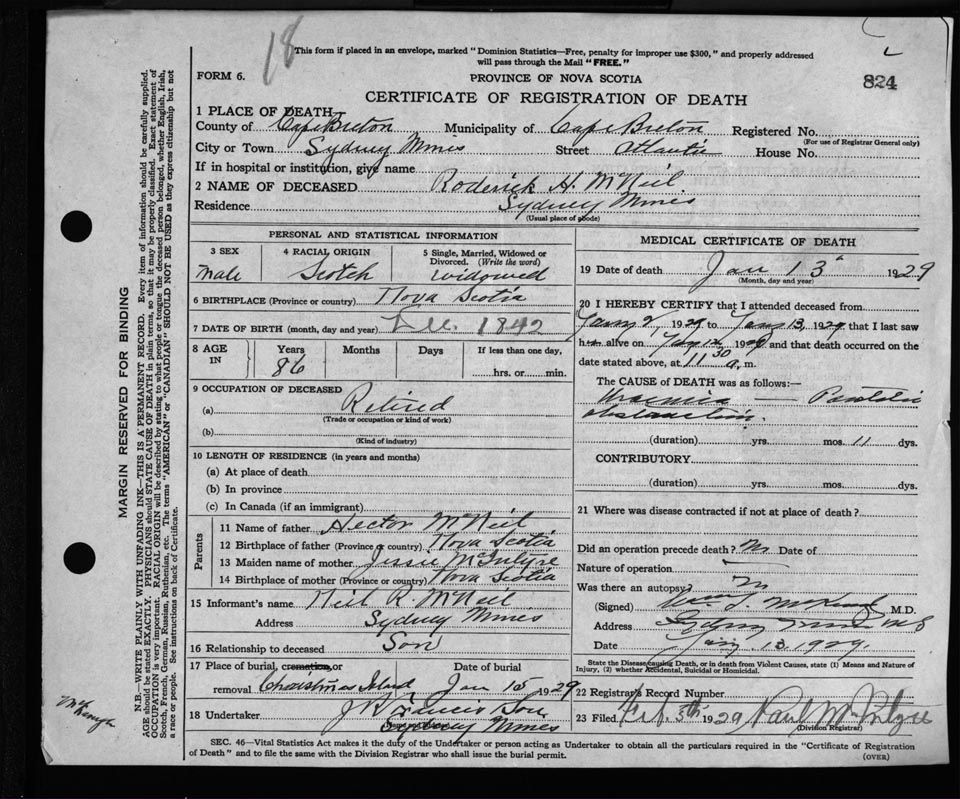 18
This form if placed in an envelope, marked "Dominion Statistics—Free, penalty for improper use $300," and properly addressed
will pass through the Mail "FREE."
FORM 6.
PROVINCE OF NOVA SCOTIA
824
CERTIFICATE OF REGISTRATION OF DEATH
1 PLACE OF DEATH
County of Cape Breton Municipality of Cape Breton Registered No.
(For use of Registrar General only)
City or Town Sydney Mines Street Atlantic House No.
If in hospital or institution, give name
2 NAME OF DECEASED Roderick H. McNeil
Residence Sydney Mines
(Usual place of abode)
PERSONAL AND STATISTICAL INFORMATION
3 SEX 4 RACIAL ORIGIN 5 Single, Married, Widowed or Divorced. (Write the word)
Male Scotch Widowed
6 BIRTHPLACE (Province or country) Nova Scotia
7 DATE OF BIRTH (month, day and year) Dec. 1842
8 AGE IN Years Months Days If less than one day,
86 hrs. or min.
9 OCCUPATION OF DECEASED
(a) Retired
(Trade or occupation or kind of work)
(b)
(Kind of industry)
10 LENGTH OF RESIDENCE (in years and months)
(a) At place of death
(b) In province
(c) In Canada (if an immigrant)
Parents
11 Name of father Hector McNeil
12 Birthplace of father (Province or country) Nova Scotia
13 Maiden name of mother Jessie McIntyre
14 Birthplace of mother (Province or country) Nova Scotia
15 Informant's name Neil R. McNeil
Address Sydney Mines
16 Relationship to deceased Son
17 Place of burial, cremation, or removal Christmas Island
Date of burial Jan 15 1929
18 Undertaker J R Francis Son
Sydney Mines
MEDICAL CERTIFICATE OF DEATH
19 Date of death Jan 13 1929
(Month, day and year)
20 I HEREBY CERTIFY that I attended deceased from
Jany 2, 1929 to Jany 13, 1929 that I last saw
him alive on Jany 12, 1929 and that death occurred on the
date stated above, at 11 30 a. m.
The CAUSE of DEATH was as follows:—
Uraemia — Prostatic
obstruction.
(duration) yrs. mos. 11 dys.
CONTRIBUTORY
(duration) yrs. mos. dys.
21 Where was disease contracted if not at place of death?
Did an operation precede death? No Date of
Nature of operation
Was there an autopsy? No
(Signed) M.D.
Address Sydney Mines N S
Date Jany 13. 1929
State the Disease causing Death, or in death from Violent Causes, state (1) Means and Nature of
Injury, (2) whether Accidental, Suicidal or Homicidal.
22 Registrar's Record Number
23 Filed Feb. 5th 1929 Paul McIntyre
(Division Registrar)
SEC. 46—Vital Statistics Act makes it the duty of the Undertaker or person acting as Undertaker to obtain all the particulars required in the "Certificate of Registration
of Death" and to file the same with the Division Registrar who shall issue the burial permit.
(OVER)
MARGIN RESERVED FOR BINDING
N.B.—WRITE PLAINLY WITH UNFADING INK—THIS IS A PERMANENT RECORD. Every item of information should be carefully supplied.
AGE should be stated EXACTLY. PHYSICIANS should STATE CAUSE OF DEATH in plain terms, so that it may be properly classified. Exact statement of
OCCUPATION is very important. RACIAL ORIGIN will be described by stating to what people or tongue the deceased person belonged, whether English, Irish,
Scotch, French, German, Russian, Ruthenian, etc. The terms "AMERICAN" or "CANADIAN" SHOULD NOT BE USED as they express citizenship but not
a race or people. See instructions on back of Certificate.